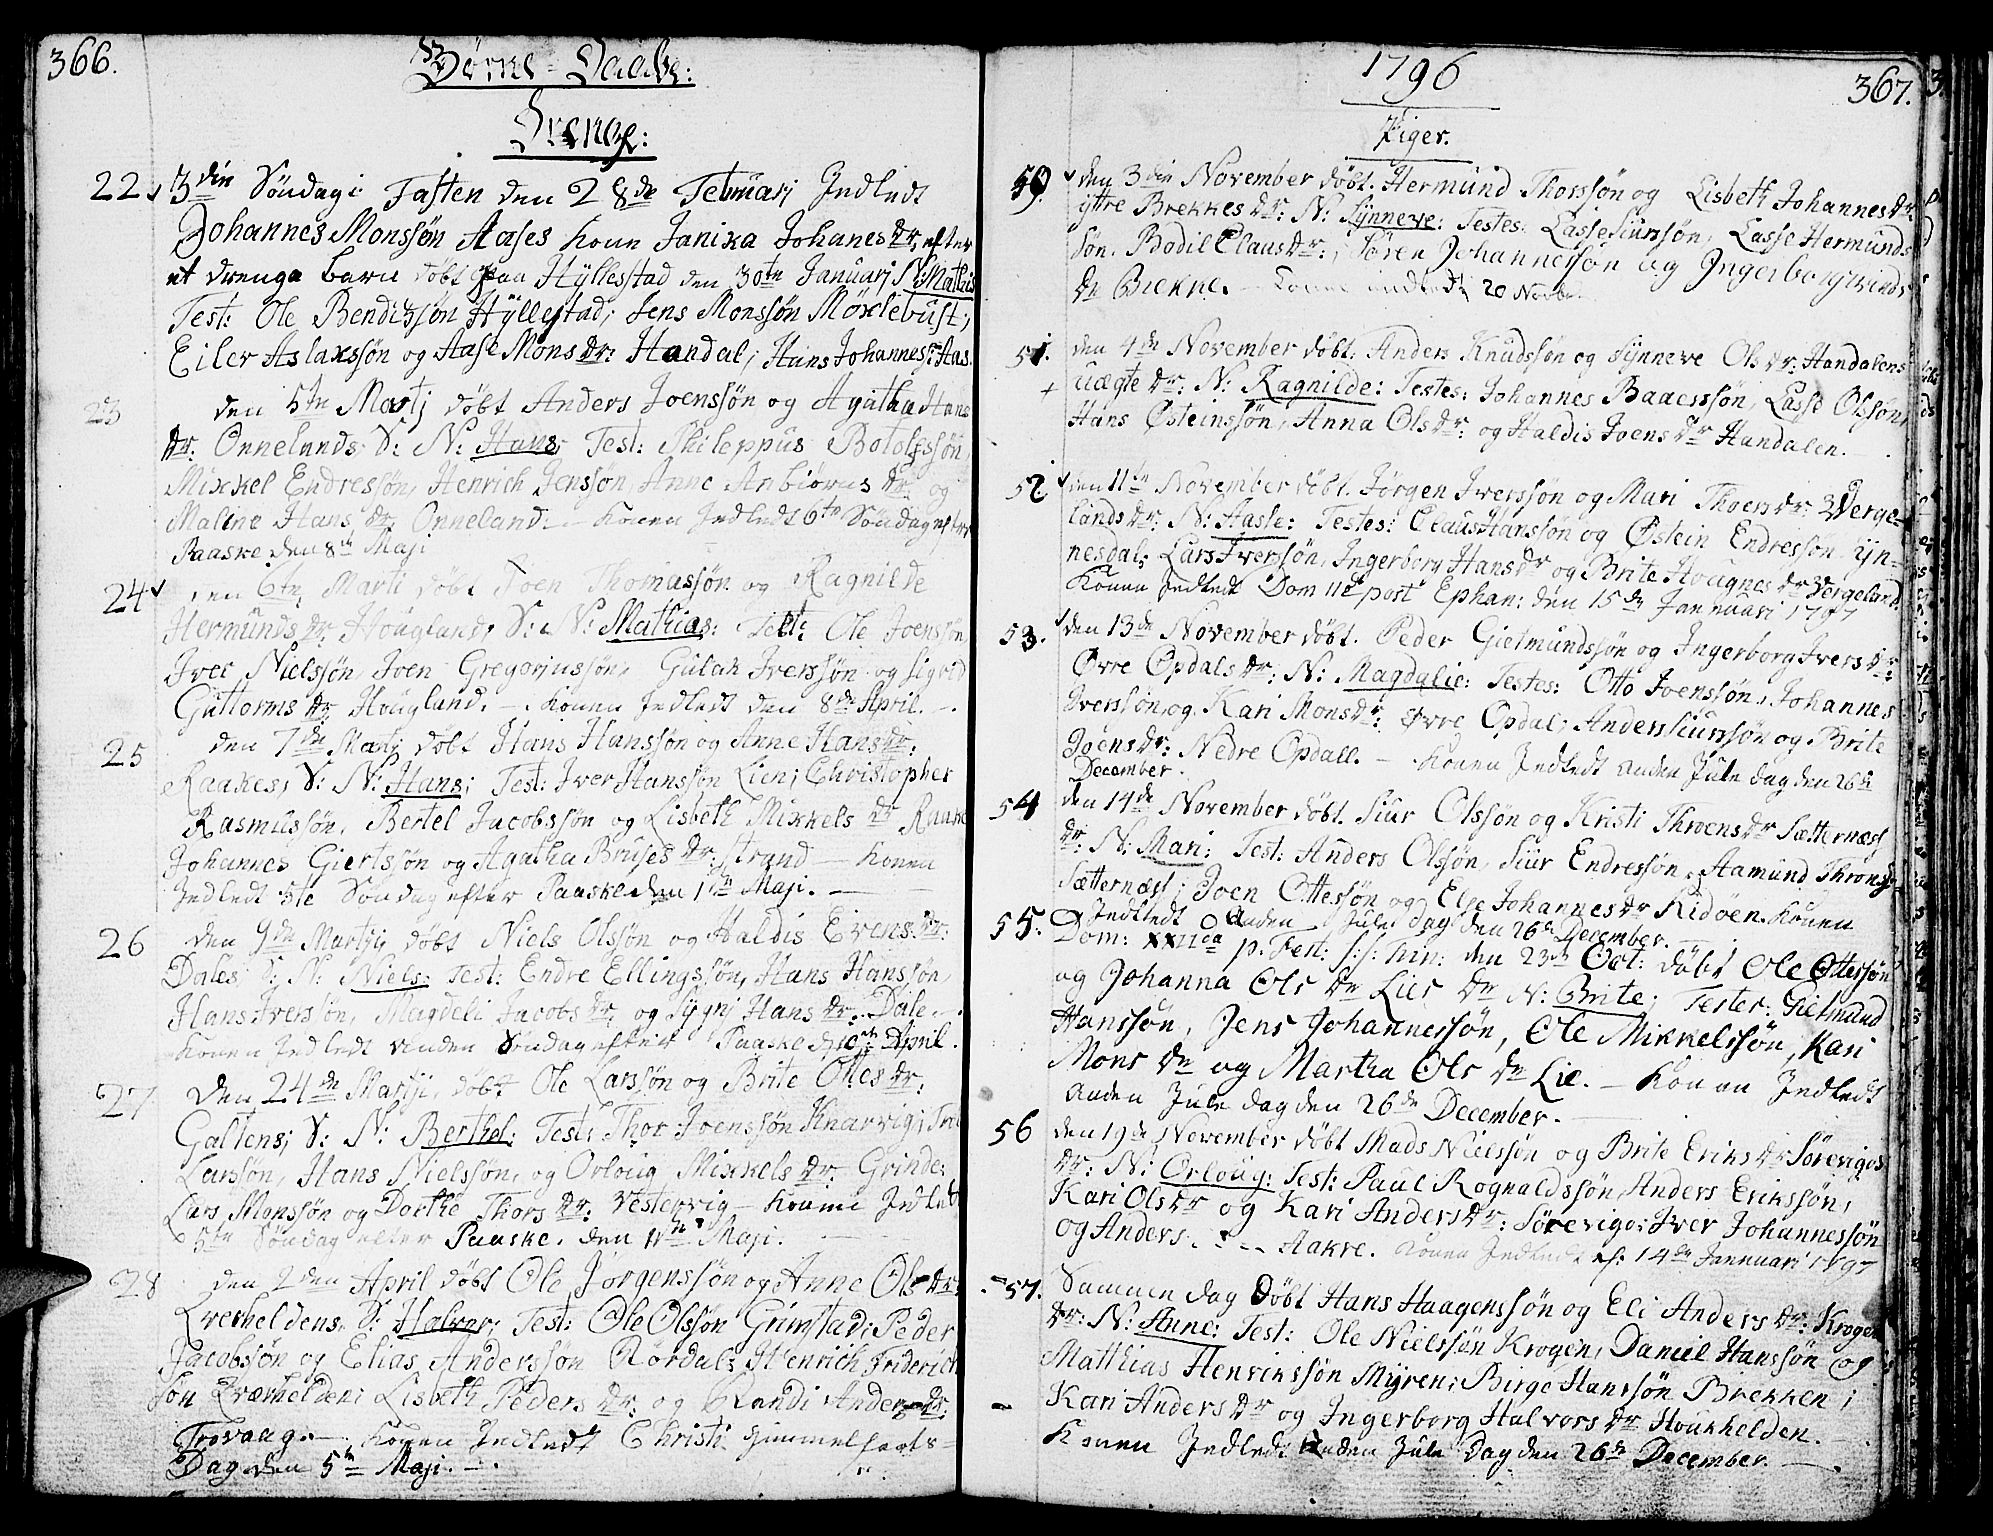 366.
Børne-Daabe:
Drenge:
22. 3die Søndag i Fasten den 28de Februarj Indledt
Johannes Monssøn Aases kone Janika Johanes dr, efter
et drenge barn døbt paa Hyllestad den 30te Januarj N: Mathis
Test: Ole Bendixsøn Hyllestad; Jens Monssøn Møxlebust;
Eiler Aslaxssøn og Aase Mons dr: Handal; Hans Johannes: Aas.
23 den 5te Martj døbt Anders Joenssøn og Agatha Hans
dr: Onnelands S: N: Hans; Test: Philippus Botolfssøn,
Mikkel Endressøn, Henrich Jenssøn, Anne Anbiørns dr og
Maline Hans dr: Onneland. — Konen Indledt 6te Søndag efter
Paaske den 8de Maji
24 den 6te Marti døbt Joen Thomassøn og Ragnilde
Hermunds dr: Hougland, S: N: Mathias: Test: Ole Joenssøn
Iver Nielssøn, Joen Gregorjussøn, Gulak Iverssøn og Sigrid
Guttorms dr: Hougland. — Konen Indledt den 8de April. —.
25 den 7de Martj døbt Hans Hanssøn og Anne Hans dr:
Raakes; S: N: Hans; Test: Iver Hanssøn Lien; Christopher
Rasmussøn, Bertel Jacobssøn og Lisbeth Mikkels dr Raake
Johannes Giertssøn og Agatha Bruses dr: Strand — Konen
Indledt 5te Søndag efter Paaske den 1ste Maji. —
26 den 9de Martij døbt Niels Olssøn og Haldis Evens dr:
Dales S: N: Niels: Test: Endre Ellingssøn, Hans Hanssøn,
Hans Iverssøn, Magdeli Jacobs dr: og Sygnj Hans dr: Dale —.
Konen Indledt anden Søndag efter Paaske d: 10de April.
27 Den 24de Martji, døbt Ole Larssøn og Brite Ottes dr:
Galtens; S: N: Berthel: Test: Thor Joenssøn Knarvig;
Larssøn, Hans Nielssøn, og Orloug Mikkels dr: Grinde;
Lars Monssøn og Dorthe Thors dr: Vestervig — Konnen Indledt
5te Søndag efter Paaske, den 1ste Maji.
28 den 2den April døbt Ole Jørgenssøn og Anne Ols dr:
Qverheldens, S: Halvor; Test: Ole Olssøn Grimstad; Peder
Jacobssøn og Elias Anderssøn Rørdal; Henrich Friderich
søn Qværhelden; Lisbeth Peders dr: og Randi Anders dr:
Trovaag. — Konen Indledt Christi Himmelfarts-
Dag den 5te Maji. —
1796
367.
Piger.
50. den 3die November døbt. Hermund Thorssøn og Lisbeth Johannes dr:
ytre Brekkes dr: N: Synneve: Testes: Lasse Siurssøn, Lasse Hermunds
søn. Bodil Claus dr:, Søren Johannessøn og Ingerborg Eivinds
dr Brekke. — Konen indledt 20 Novbr.
51. den 4de November døbt: Anders Knudssøn og Synneve Ols dr: Handalens
+ uægte dr: N: Ragnilde: Testes: Johannes Baaerssøn, Lasse Olssøn,
Hans Østeinssøn, Anna Ols dr: og Haldis Joens dr Handalen.
52 den 11te November døbt. Jørgen Iverssøn og Mari Thoers dr: Verge-
lands dr: N: Aasse: Testes: Claus Hanssøn og Østein Endressøn Yn-
nesdal; Lars Iverssøn, Ingerborg Hans dr og Brite Hougnes dr: Vergeland.
Konen Indledt Dom 11da post Ephan: den 15de Januari 1797
53. den 13de November døbt. Peder Gietmundssøn og Ingerborg Ivers dr:
Øvre Opdals dr: N: Magdalie: Testes: Otto Joenssøn, Johannes
Iverssøn og Kari Mons dr: øvre Opdal; Anders Siurssøn og Brite
Joens dr: Nedre Opdall. — Konen Indledt anden Jule dag den 26de
December.
54 den 14de November døbt. Siur Olssøn og Kristi Throens dr Sætternæst
dr: N: Mari: Test: Anders Olssøn, Siur Endressøn, Aamund Throns
Sætternæst; Joen Ottessøn og Else Johannes dr Ridøen. Konen
Indledt anden Jule dag den 26de December.
55. Dom: XXIIda p. Fest: s: s: Trin: den 23de Oct: døbt Ole Ottessøn
og Johanna Ols dr Lies dr N: Brite; Tester: Gietmund
Hanssøn, Jens Johannessøn, Ole Mikkelssøn, Kari
Mons dr og Martha Ols dr Lie. — Konen Indledt
anden Jule dag den 26de December.
56 den 19de November døbt Mads Nielssøn og Brite Eriks dr Sørevigs
dr: N: Orloug: Test: Paul Rognaldssøn, Anders Erikssøn,
Kari Ols dr og Kari Anders dr: Sørevigs; Iver Johannessøn
og Anders - - - Aakre. Konen Indledt d: 14de Januari 1797
57. Sammen dag døbt Hans Haagenssøn og Eli Anders dr: Krogen
dr: N: Anne: Test: Ole Nielssøn Krogen, Daniel Hanssøn og
Matthias Henrikssøn Myren; Birge Hanssøn Brekken;
Kari Anders dr og Ingerborg Halvors dr Houkhelden.
Konen Indledt anden Jule Dag den 26de December. —